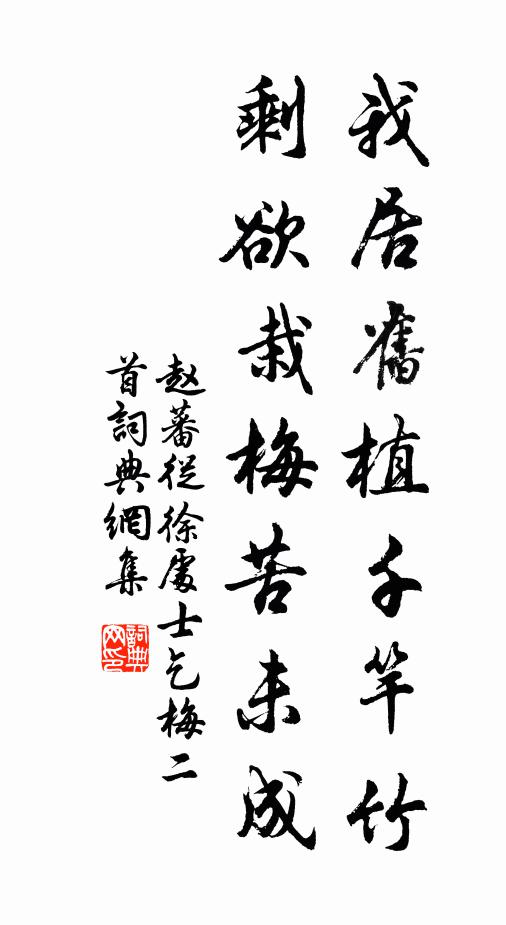 我居舊植千竿竹
剩欲栽梅苦未成
赵蕃從徐處士乞梅二
首詞典網集
詞典
网印